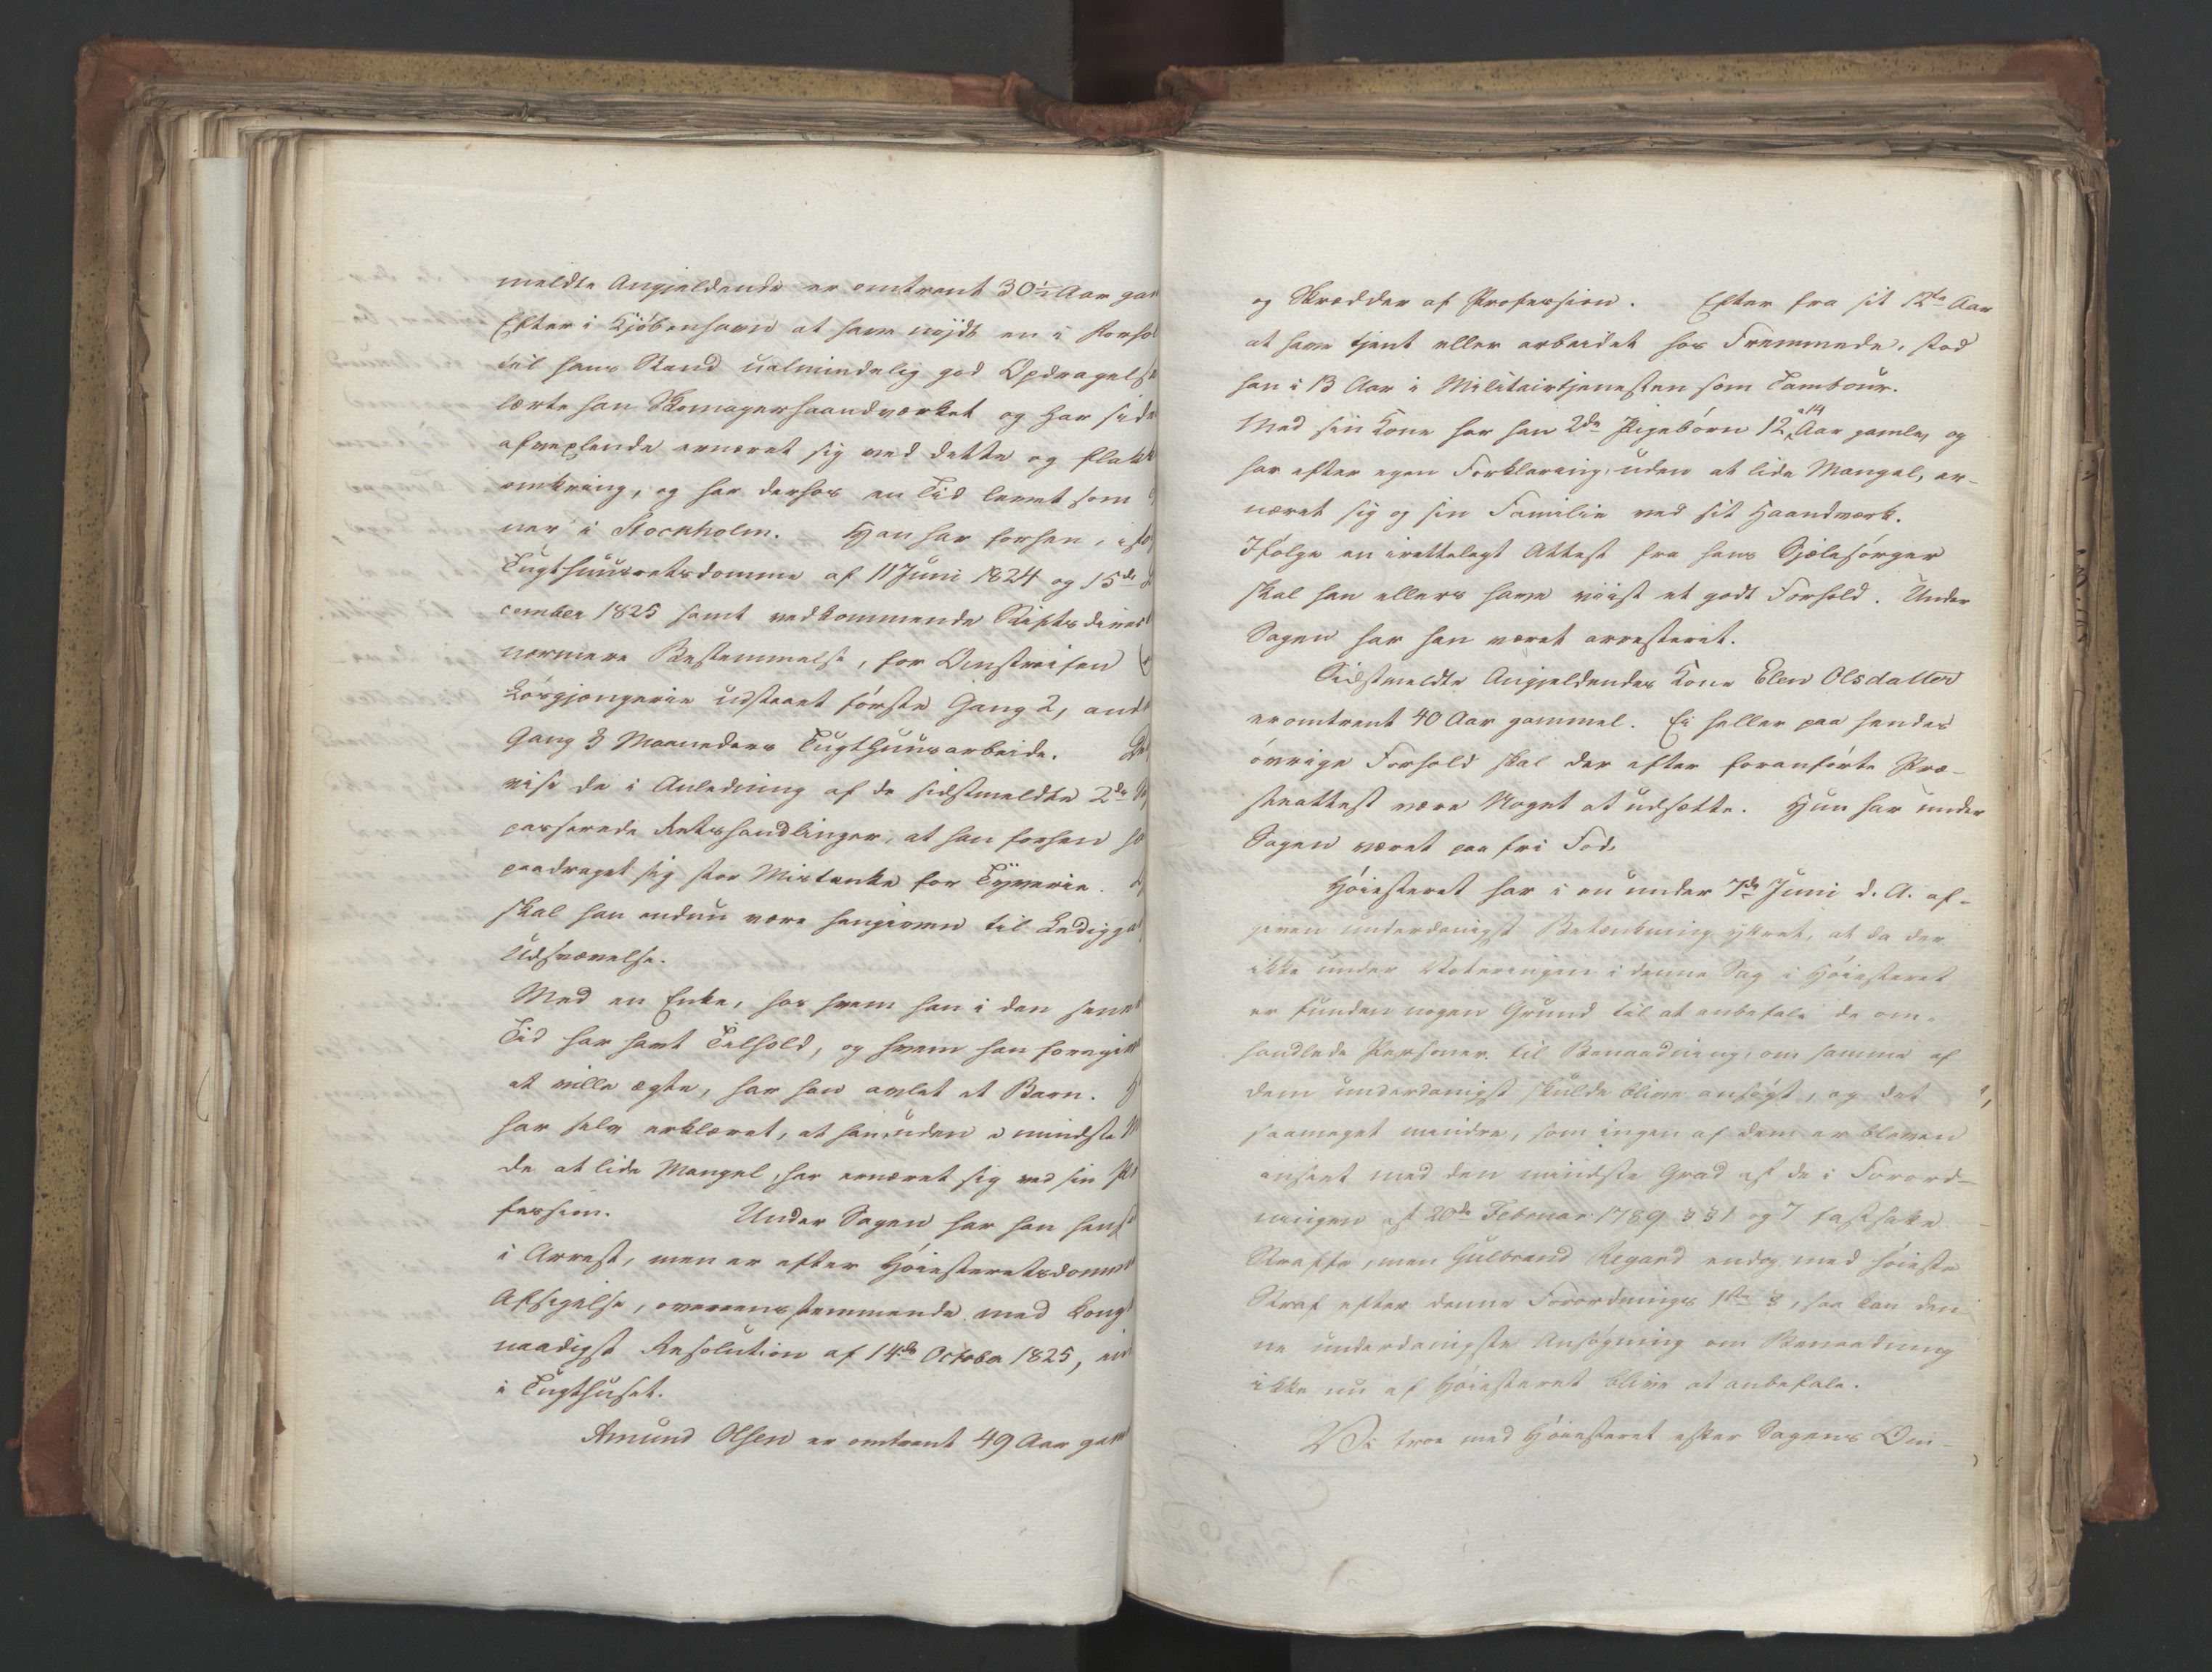 meldte Angjeldende er omtrent 30½ Aar gam
Efter i Kjöbenhavn at have nydt en i Forhol
til hans Stand ualmindelig god Opdragelse
lærte han Skomagerhaandværket og har side
afvexlende ernæret sig ved dette og flakk
omkring, og har derhos en Tid levet som
ner i Stockholm. Han har forhen, ifö
Tugthuusretsdomme af 11 Juni 1824 og 15de De
cember 1825 samt vedkommende Stiftsdirect
nærmere Bestemmelse, for Omstreifen
Lösgjængerie udstaaet förste Gang 2, and
Gang 3 Maaneders Tugthuusarbeide. Lige
vise de i Anledning af de sidstmeldte 2de
passerede Retshandlinger, at han forhen ha
paadraget sig stor Mistanke for Tyverie.
skal han endnu være hengiven til Lediggan
Udsvævelse.
Med en Enke, hos hvem han i den sener
Tid har havt Tilhold, og hvem han foregive
at ville ægte, har han avlet et Barn. H
har selv erklæret, at han, uden i mindste M
de at lide Mangel, har ernæret sig ved sin Pro
fession. Under Sagen har han hensid
i Arrest, men er efter Höiesteretsdomme
Afsigelse, overensstemmende med Kong
naadigst Resolution af 14de October 1825, ind
i Tugthuset.
Amund Olsen er omtrent 49 Aar gam
og Skrædder af Profession. Efter fra sit 12te Aar
at have tjent eller arbeidet hos Fremmede, stod
han i 13 Aar i Militairtjenesten som Tambour.
Med sin Kone har han 2de Pigebörn 12 a 14 Aar gamle, og
har efter egen Forklaring, uden at lide Mangel, er-
næret sig og sin Familie ved sit Haandværk.
Ifölge en irettelagt Attest fra hans Sjælesörger
skal han ellers have viist et godt Forhold. Under
Sagen har han været arresteret.
Sidstmeldte Angjeldendes Kone Elen Olsdatter
er omtrent 40 Aar gammel. Ei heller paa hendes
övrige Forhold skal der efter foranförte Præ-
steattest være Noget at udsætte. Hun har under
Sagen været paa fri Fod.
Höiesteret har i en under 7de Juni d. A. af-
given underdanigst Betænkning yttret, at da der
ikke under Voteringen i denne Sag i Höiesteret
er funden nogen Grund til at anbefale de om-
handlede Personer til Benaadning, om samme af
dem underdanigst skulde blive ansögt, og det
saameget mindre, som ingen af dem er bleven
anseet med den mindste Grad af de i Forord-
ningen af 20de Februar 1789 §§ 1 og 7 fastsatte
Straffe, men Gulbrand Aegard endog med höieste
Straf efter denne Forordnings 1ste §, saa kan den
ne underdanigste Ansögning om Benaadning
ikke nu af Höiesteret blive at anbefale.
Vi troe med Höiesteret efter Sagens Om-